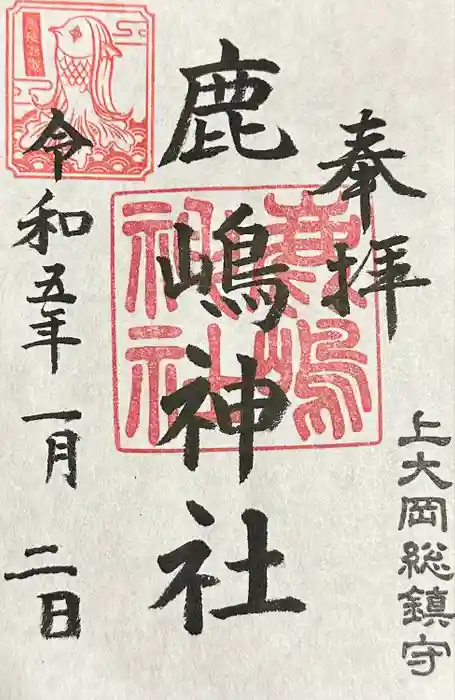 奉拝
上大岡総鎮守
鹿嶋神社
鹿嶋
神社
令和五年一月二日